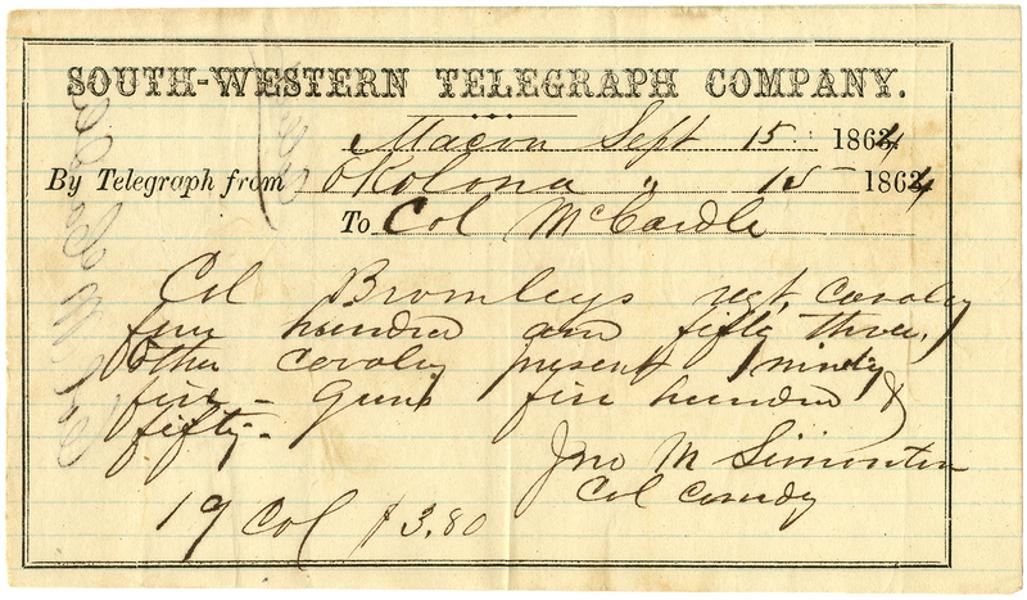 SOUTH-WESTERN TELEGRAPH COMPANY.
Macon Sept 15 1864
By Telegraph from Okolona " 15 1864
To Col McCardle
Col Bromleys regt, cavalry
four hundred and fifty three,
Other cavalry present ninety
five - Guns five hundred &
fifty -
Jno M Simonton
Col Comdg
19 Col $3.80